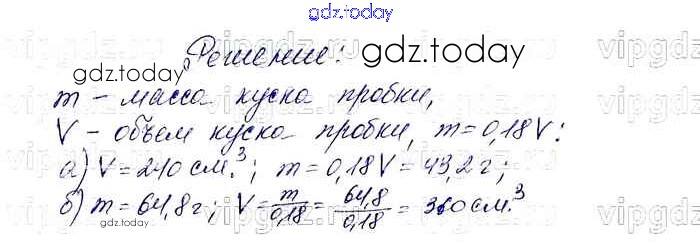 gdz.today
Решение: gdz.today
gdz.today
m - масса куска пробки,
V - объем куска пробки, m = 0,18V:
а) V = 240 см.³; m = 0,18V = 43,2 г;
б) m = 64,8 г; V = m/0,18 = 64,8/0,18 = 360 см.³
gdz.today